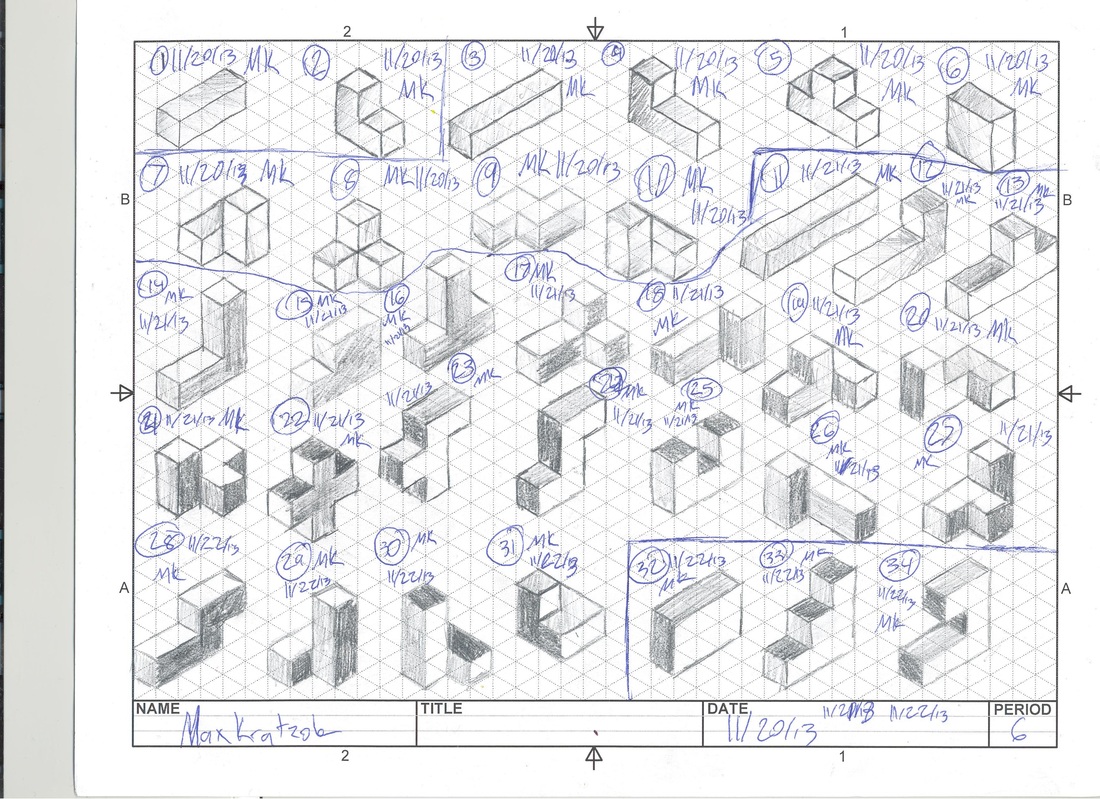 2 1
1 11/20/13 MK 2 11/20/13 MK 3 11/20/13 MK 4 11/20/13 MK 5 11/20/13 MK 6 11/20/13 MK
B B
7 11/20/13 MK 8 MK 11/20/13 9 MK 11/20/13 10 MK 11/20/13 11 11/21/13 MK 12 11/21/13 MK 13 MK 11/21/13
14 MK 11/21/13 15 MK 11/21/13 16 MK 11/21/13 17 MK 11/21/13 18 11/21/13 MK 19 11/21/13 MK 20 11/21/13 MK
21 11/21/13 MK 22 11/21/13 MK 11/21/13 23 MK MK 11/21/13 25 MK 11/21/13 26 MK 11/21/13 27 MK 11/21/13
28 11/22/13 MK 29 MK 11/22/13 30 MK 11/22/13 31 MK 11/22/13 32 11/22/13 MK 33 MK 11/22/13 34 11/22/13 MK
A A
NAME TITLE DATE PERIOD
Max 11/20/13 11/22/13 6
2 1